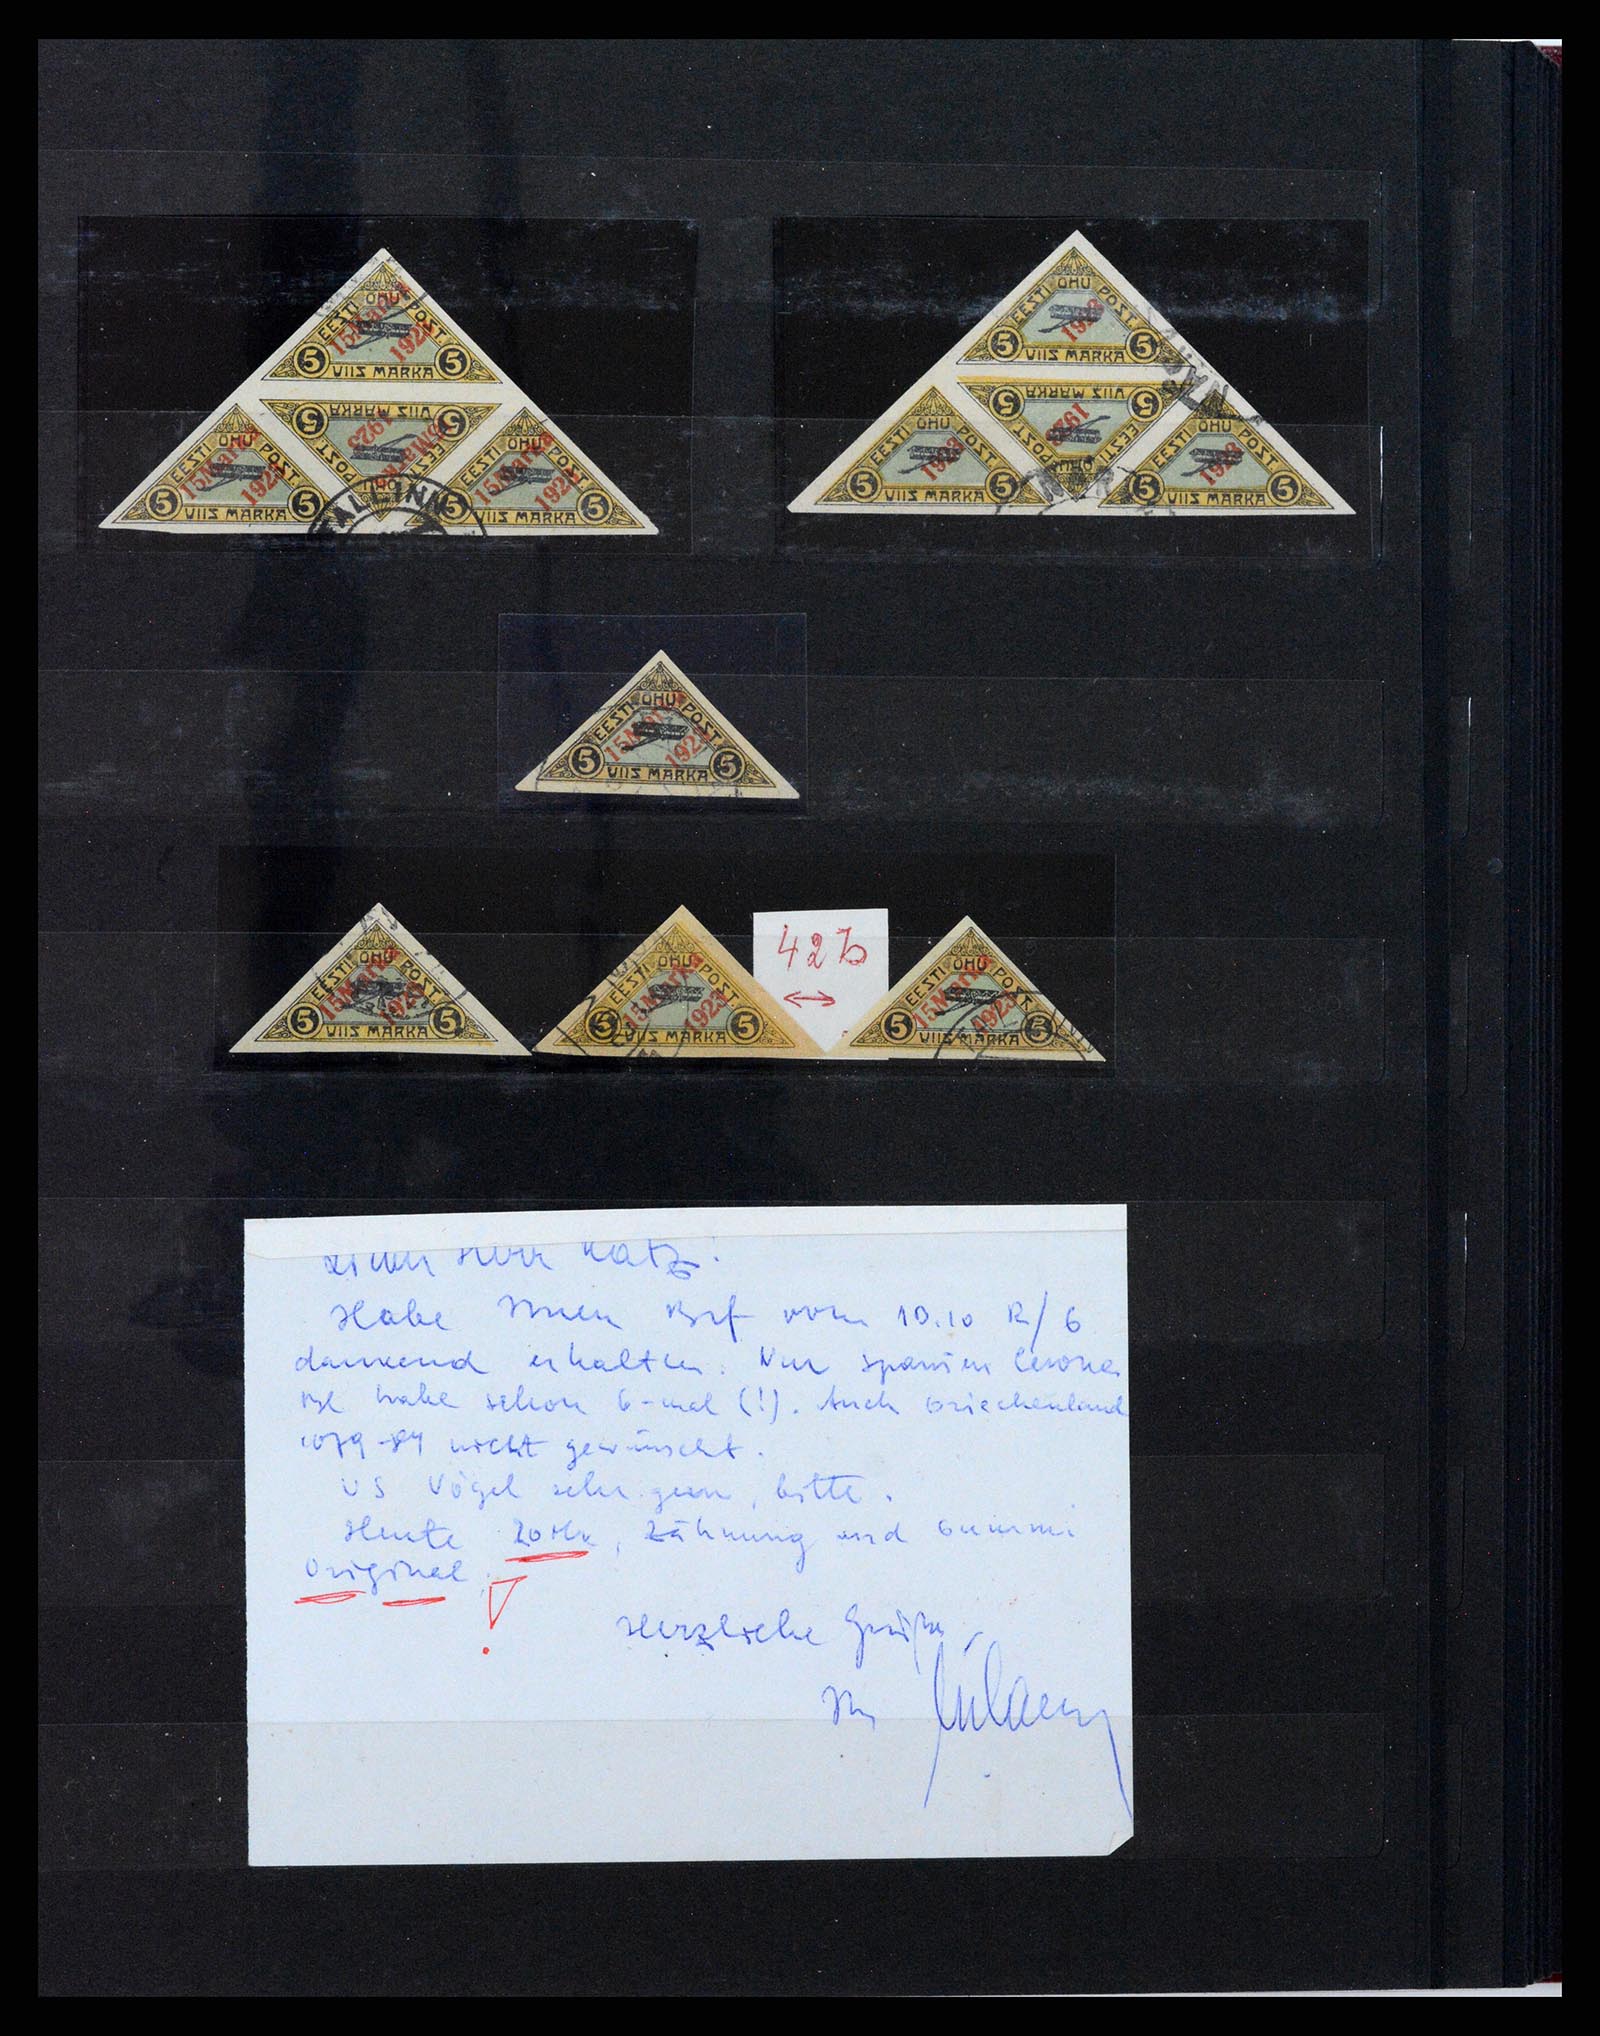 EESTI ÕHU POST.
15 Marka 1923
5 VIIS MARKA 5
EESTI ÕHU POST.
15 Marka 1923
5 VIIS MARKA 5
EESTI ÕHU POST.
15 Marka 1923
5 VIIS MARKA 5
EESTI ÕHU POST.
15 Marka 1923
5 VIIS MARKA 5
TALLINN
EESTI ÕHU POST.
1923
5 VIIS MARKA 5
EESTI ÕHU POST.
1923
5 VIIS MARKA 5
EESTI ÕHU POST.
1923
5 VIIS MARKA 5
EESTI ÕHU POST.
1923
5 VIIS MARKA 5
EESTI ÕHU POST.
15 Marka 1923
5 VIIS MARKA 5
EESTI ÕHU POST.
15 Marka 1923
5 VIIS MARKA 5
EESTI ÕHU POST.
15 Marka 1923
5 VIIS MARKA 5
42b
↔
EESTI ÕHU POST.
15 Marka 1923
5 VIIS MARKA 5
Lieber Herr Katz!
Habe Ihren Brf vom 10.10 R/6
dankend erhalten. Nur Spanien
habe schon 6-mal (!). Auch Griechenland
1079-84 nicht gewünscht.
US Vögel sehr gern, bitte.
Heute 20 Mk, Zähnung und Gummi
Original.
!
Herzliche Grüße,
Ihr